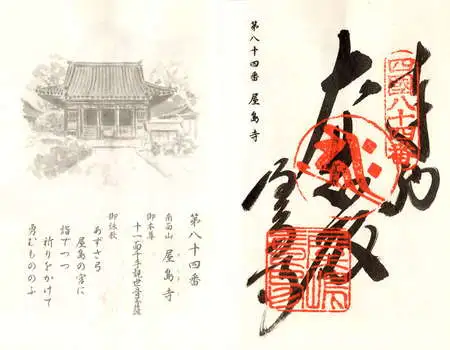 奉納
四國八十四番
屋島寺
第八十四番 屋島寺
第八十四番
南面山 屋島寺
御本尊
十一面千手観世音菩薩
御詠歌
あずさ弓
屋島の宮に
詣でつつ
祈りをかけて
勇むもののふ